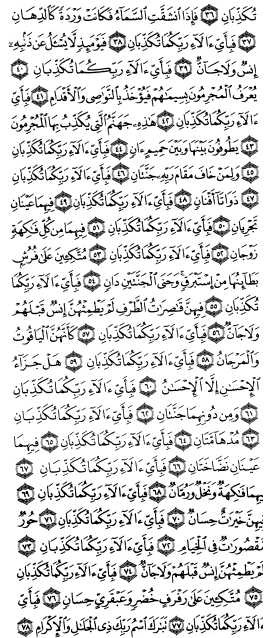 تُكَذِّبَانِ ٣٦ فَإِذَا ٱنشَقَّتِ ٱلسَّمَآءُ فَكَانَتْ وَرْدَةً كَٱلدِّهَانِ
٣٧ فَبِأَيِّ ءَالَآءِ رَبِّكُمَا تُكَذِّبَانِ ٣٨ فَيَوْمَئِذٍ لَّا يُسْـَٔلُ عَن ذَنۢبِهِۦٓ
إِنسٌ وَلَا جَآنٌّ ٣٩ فَبِأَيِّ ءَالَآءِ رَبِّكُمَا تُكَذِّبَانِ ٤٠
يُعْرَفُ ٱلْمُجْرِمُونَ بِسِيمَٰهُمْ فَيُؤْخَذُ بِٱلنَّوَٰصِى وَٱلْأَقْدَامِ ٤١ فَبِأَيِّ
ءَالَآءِ رَبِّكُمَا تُكَذِّبَانِ ٤٢ هَٰذِهِۦ جَهَنَّمُ ٱلَّتِى يُكَذِّبُ بِهَا ٱلْمُجْرِمُونَ
٤٣ يَطُوفُونَ بَيْنَهَا وَبَيْنَ حَمِيمٍ ءَانٍ ٤٤ فَبِأَيِّ ءَالَآءِ رَبِّكُمَا تُكَذِّبَانِ
٤٥ وَلِمَنْ خَافَ مَقَامَ رَبِّهِۦ جَنَّتَانِ ٤٦ فَبِأَيِّ ءَالَآءِ رَبِّكُمَا تُكَذِّبَانِ
٤٧ ذَوَاتَآ أَفْنَانٍ ٤٨ فَبِأَيِّ ءَالَآءِ رَبِّكُمَا تُكَذِّبَانِ ٤٩ فِيهِمَا عَيْنَانِ
تَجْرِيَانِ ٥٠ فَبِأَيِّ ءَالَآءِ رَبِّكُمَا تُكَذِّبَانِ ٥١ فِيهِمَا مِن كُلِّ فَٰكِهَةٍ
زَوْجَانِ ٥٢ فَبِأَيِّ ءَالَآءِ رَبِّكُمَا تُكَذِّبَانِ ٥٣ مُتَّكِـِٔينَ عَلَىٰ فُرُشٍۭ
بَطَآئِنُهَا مِنْ إِسْتَبْرَقٍ وَجَنَى ٱلْجَنَّتَيْنِ دَانٍ ٥٤ فَبِأَيِّ ءَالَآءِ رَبِّكُمَا
تُكَذِّبَانِ ٥٥ فِيهِنَّ قَٰصِرَٰتُ ٱلطَّرْفِ لَمْ يَطْمِثْهُنَّ إِنسٌ قَبْلَهُمْ
وَلَا جَآنٌّ ٥٦ فَبِأَيِّ ءَالَآءِ رَبِّكُمَا تُكَذِّبَانِ ٥٧ كَأَنَّهُنَّ ٱلْيَاقُوتُ
وَٱلْمَرْجَانُ ٥٨ فَبِأَيِّ ءَالَآءِ رَبِّكُمَا تُكَذِّبَانِ ٥٩ هَلْ جَزَآءُ
ٱلْإِحْسَٰنِ إِلَّا ٱلْإِحْسَٰنُ ٦٠ فَبِأَيِّ ءَالَآءِ رَبِّكُمَا تُكَذِّبَانِ
٦١ وَمِن دُونِهِمَا جَنَّتَانِ ٦٢ فَبِأَيِّ ءَالَآءِ رَبِّكُمَا تُكَذِّبَانِ
٦٣ مُدْهَآمَّتَانِ ٦٤ فَبِأَيِّ ءَالَآءِ رَبِّكُمَا تُكَذِّبَانِ ٦٥ فِيهِمَا
عَيْنَانِ نَضَّاخَتَانِ ٦٦ فَبِأَيِّ ءَالَآءِ رَبِّكُمَا تُكَذِّبَانِ ٦٧
فِيهِمَا فَٰكِهَةٌ وَنَخْلٌ وَرُمَّانٌ ٦٨ فَبِأَيِّ ءَالَآءِ رَبِّكُمَا تُكَذِّبَانِ ٦٩
فِيهِنَّ خَيْرَٰتٌ حِسَانٌ ٧٠ فَبِأَيِّ ءَالَآءِ رَبِّكُمَا تُكَذِّبَانِ ٧١ حُورٌ
مَّقْصُورَٰتٌ فِى ٱلْخِيَامِ ٧٢ فَبِأَيِّ ءَالَآءِ رَبِّكُمَا تُكَذِّبَانِ ٧٣
لَمْ يَطْمِثْهُنَّ إِنسٌ قَبْلَهُمْ وَلَا جَآنٌّ ٧٤ فَبِأَيِّ ءَالَآءِ رَبِّكُمَا تُكَذِّبَانِ
٧٥ مُتَّكِـِٔينَ عَلَىٰ رَفْرَفٍ خُضْرٍ وَعَبْقَرِيٍّ حِسَانٍ ٧٦ فَبِأَيِّ
ءَالَآءِ رَبِّكُمَا تُكَذِّبَانِ ٧٧ تَبَٰرَكَ ٱسْمُ رَبِّكَ ذِى ٱلْجَلَٰلِ وَٱلْإِكْرَامِ ٧٨